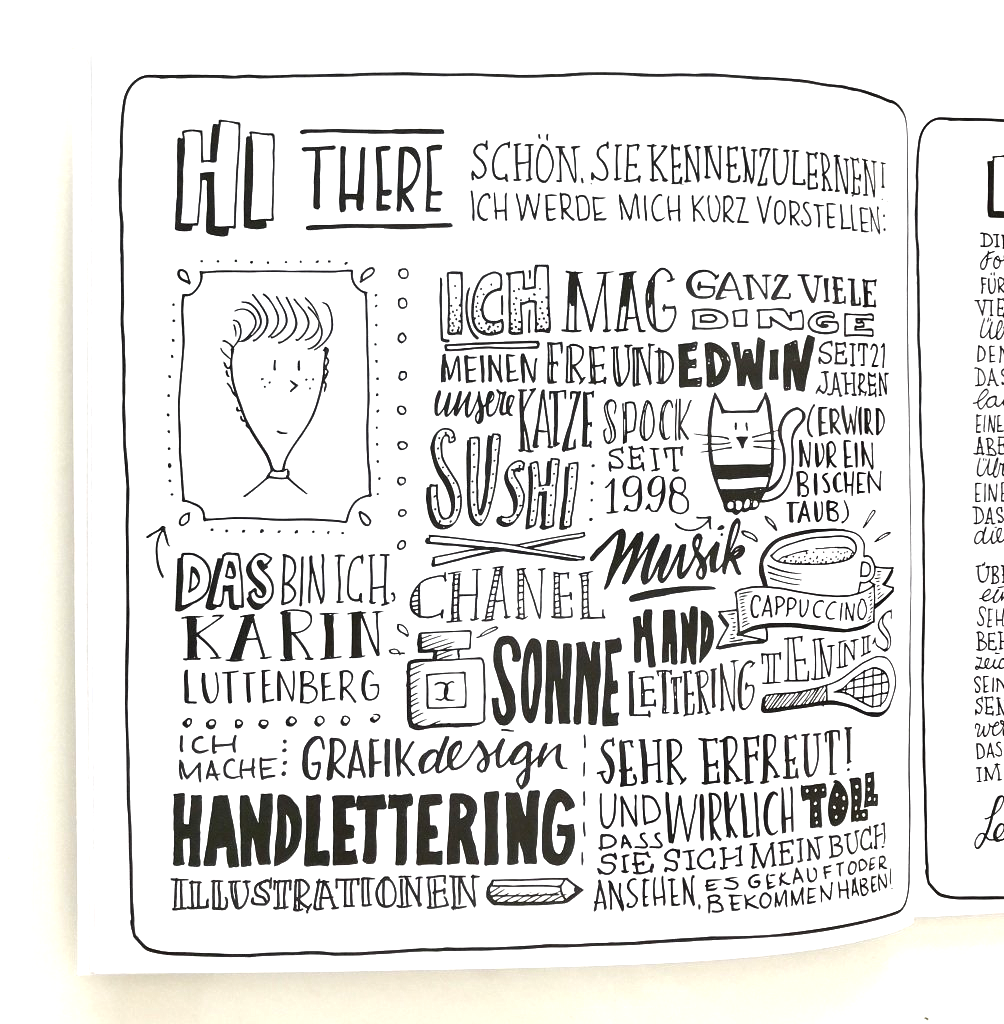 HI THERE
SCHÖN, SIE KENNENZULERNEN!
ICH WERDE MICH KURZ VORSTELLEN:
ICH MAG GANZ VIELE
DINGE
MEINEN FREUND EDWIN SEIT 21
JAHREN
unsere KATZE SPOCK
SEIT
1998
(ER WIRD
NUR EIN
BISCHEN
TAUB)
SUSHI
Musik
CHANEL
CAPPUCCINO
SONNE HAND
LETTERING TENNIS
DAS BIN ICH,
KARIN
LUTTENBERG
ICH
MACHE: GRAFIKdesign
HANDLETTERING
ILLUSTRATIONEN
SEHR ERFREUT!
UND WIRKLICH TOLL
DASS
SIE SICH MEIN BUCH
ANSEHEN, ES GEKAUFT ODER
BEKOMMEN HABEN!
FÜR
DAS
EINE
EINE
DAS
die
DAS
IM